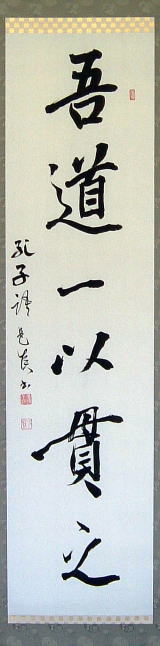 吾道一以貫之
孔子語